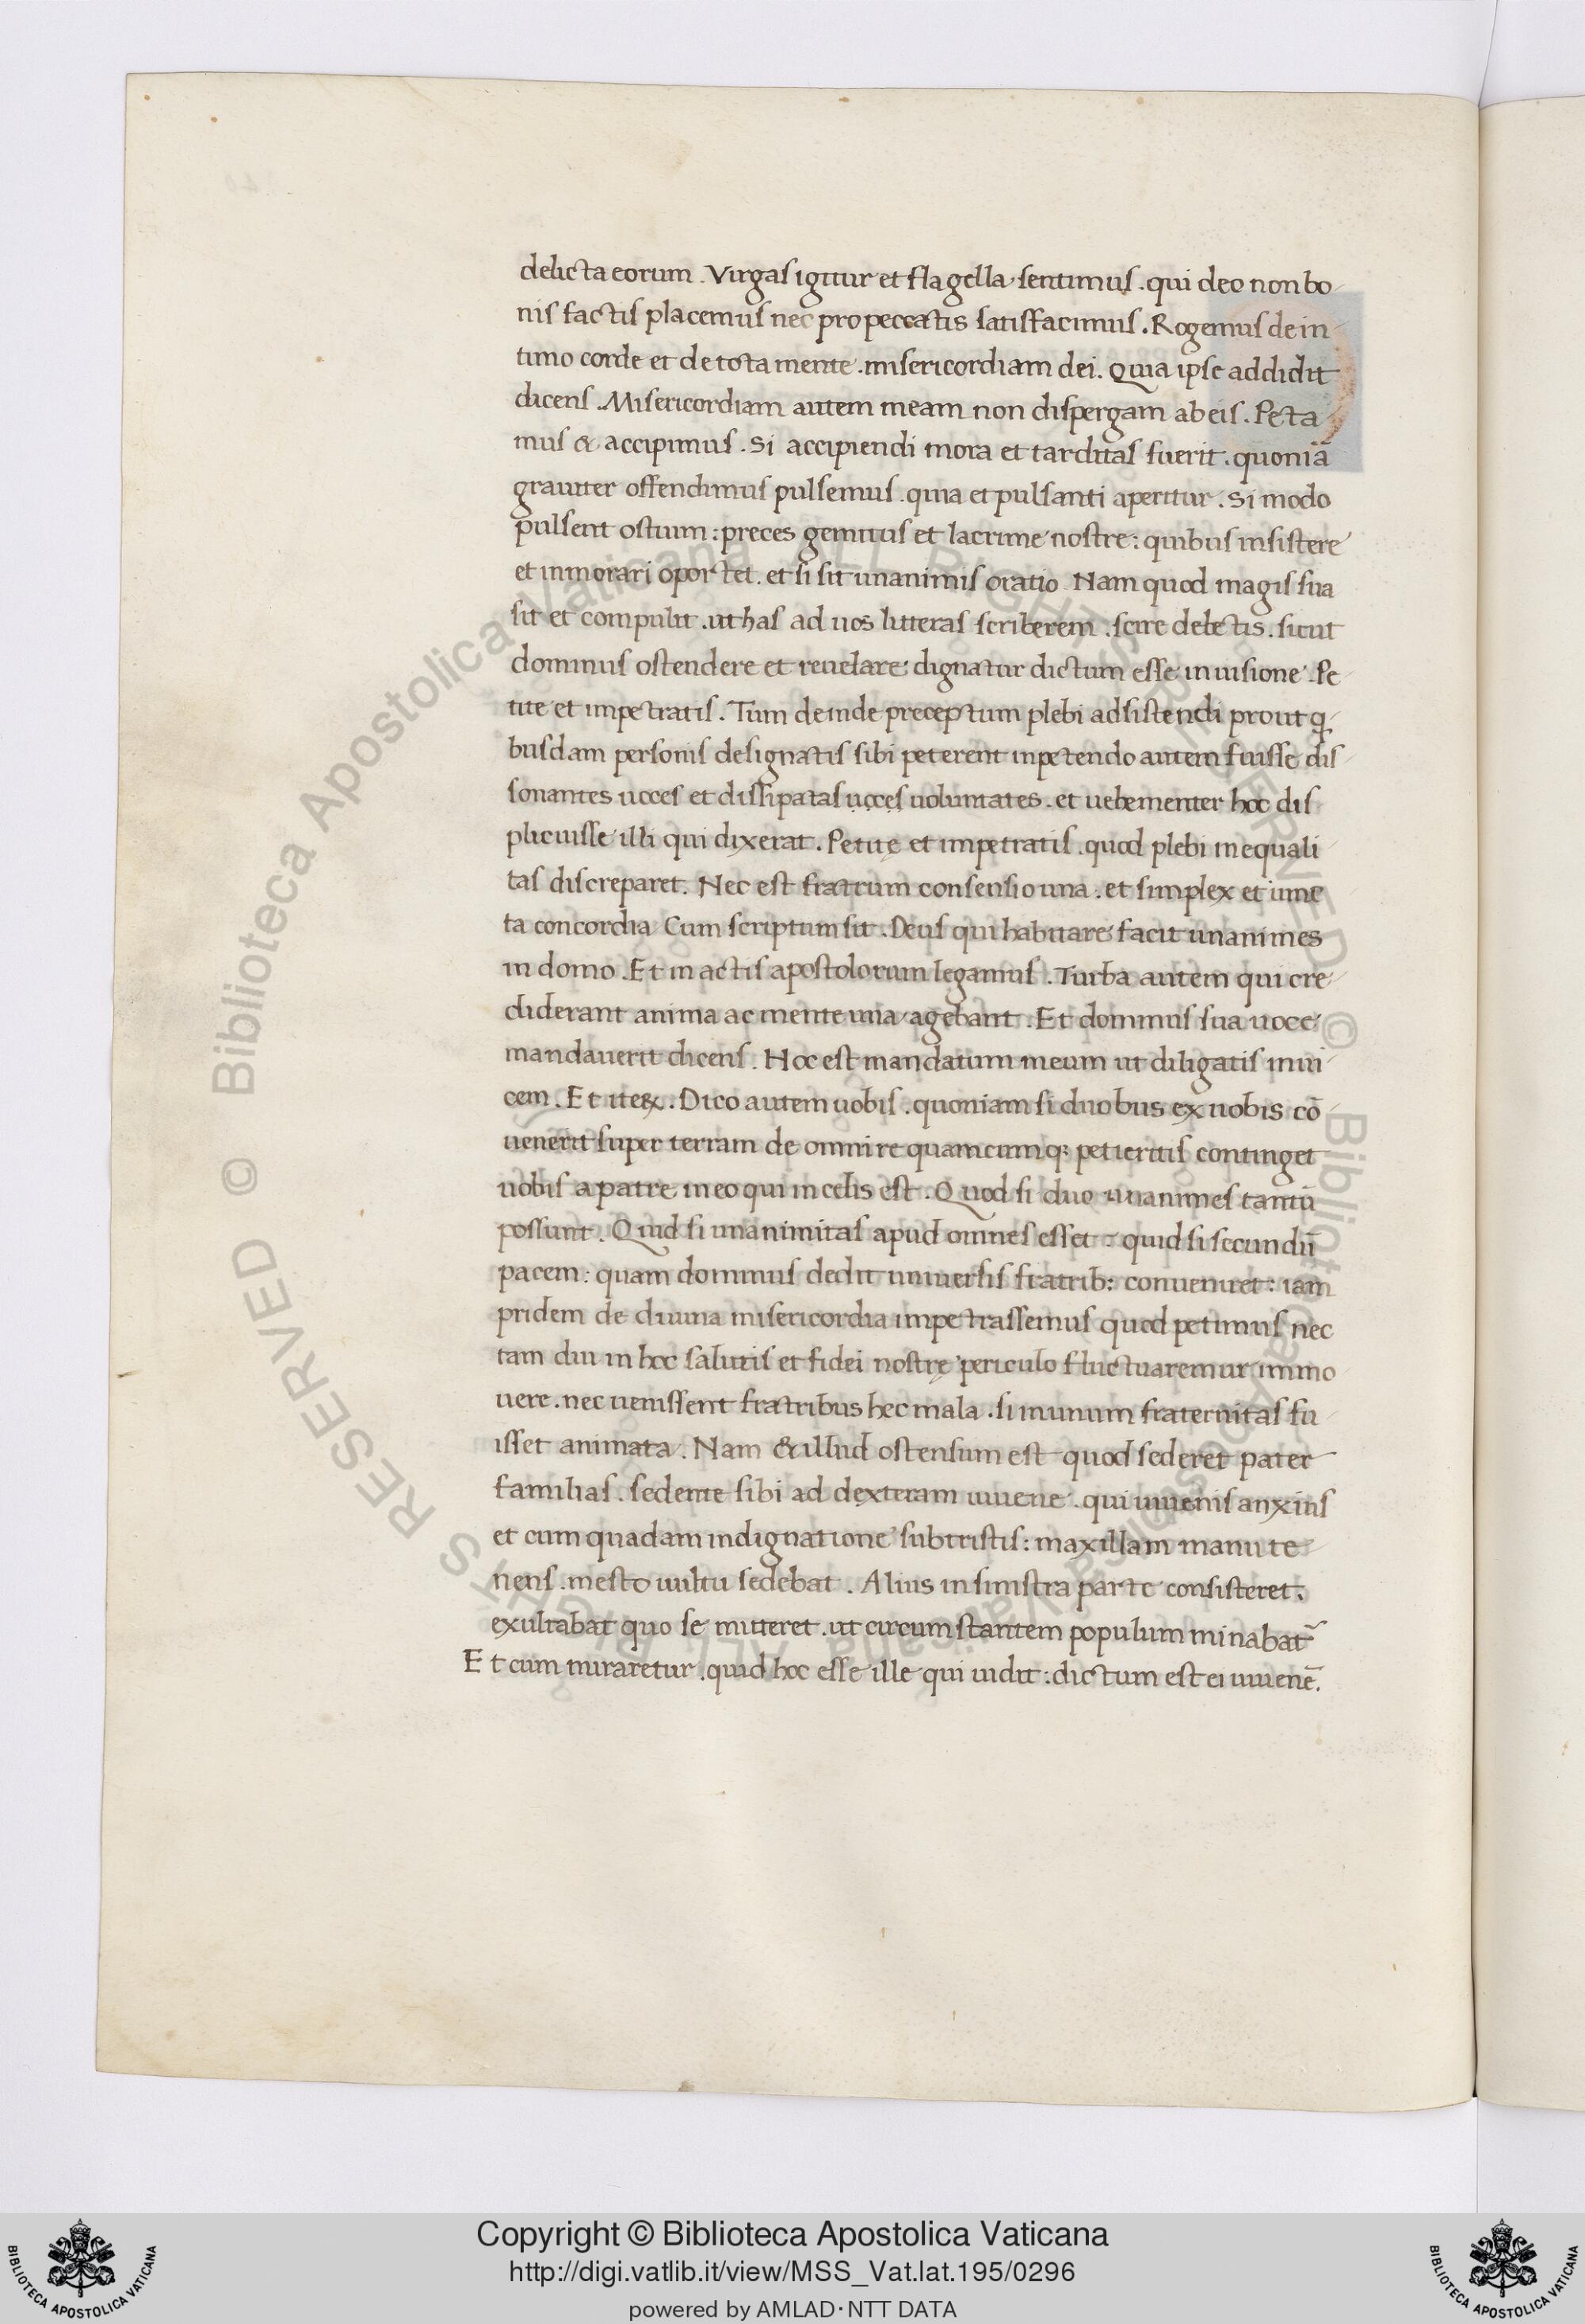 delicta eorum . Virgas igitur et flagella sentimus . qui deo non bo
nis factis placemus nec pro peccatis satisfacimus . Rogemus de in
timo corde et de tota mente . misericordiam dei . Quia ipse addidit
dicens . Misericordiam autem meam non dispergam ab eis . Peta
mus & accipimus . Si accipiendi mora et tarditas fuerit . quoniā
grauiter offendimus pulsemus . quia et pulsanti aperitur . Si modo
pulsent ostium : preces gemitus et lacrime nostre : quibus insistere
et inmorari oportet . et si sit unanimis oratio Nam quod magis sua
sit et compulit . ut has ad uos litteras scriberem . scire debetis . sicut
dominus ostendere et reuelare dignatur dictum esse in uisione . Pe
tite et impetratis . Tum deinde preceptum plebi adsistendi pro ut q
busdam personis designatis sibi peterent inpetendo autem fuisse dis
sonantes uoces et dissipatas uoces uoluntates . et uehementer hoc dis
plicuisse illi qui dixerat . Petite et impetratis . quod plebi inequali
tas discreparet . Nec est fratrum consensio una . et simplex et iunc
ta concordia Cum scriptum sit . Deus qui habitare facit unanimes
in domo . Et in actis apostolorum legamus . Turba autem qui cre
diderant anima ac mente una agebant . Et dominus sua uoce
mandauerit dicens . Hoc est mandatum meum ut diligatis inui
cem . Et iteꝝ . Dico autem uobis . quoniam si duobus ex uobis cō
uenerit super terram de omni re quamcumq; petieritis continget
uobis a patre meo qui in celis est . Quod si duo unanimes tantū
possunt . Quid si unanimitas apud omnes esset : quid si secundū
pacem : quam dominus dedit uniuersis fratrib: conueniret : iam
pridem de diuina misericordia impetrassemus quod petimus nec
tam diu in hoc salutis et fidei nostrę periculo fluctuaremur immo
uere . nec uenissent fratribus hec mala . si in unum fraternitas fu
isset animata . Nam & illud ostensum est quod sederet pater
familias . sedente sibi ad dexteram iuuene . qui iuuenis anxius
et cum quadam indignatione subtristis : maxillam manu te
nens . mesto uultu sedebat . Alius in sinistra parte consisteret .
exultabat quo se mitteret . ut circum stantem populum minabat̄
Et cum miraretur . quid hoc esse ille qui uidit : dictum est ei iuuenē .
© Biblioteca Apostolica Vaticana ALL RIGHTS RESERVED
© Biblioteca Apostolica Vaticana ALL RIGHTS RESERVED
Copyright © Biblioteca Apostolica Vaticana
http://digi.vatlib.it/view/MSS_Vat.lat.195/0296
powered by AMLAD · NTT DATA
BIBLIOTECA APOSTOLICA VATICANA
BIBLIOTECA APOSTOLICA VATICANA